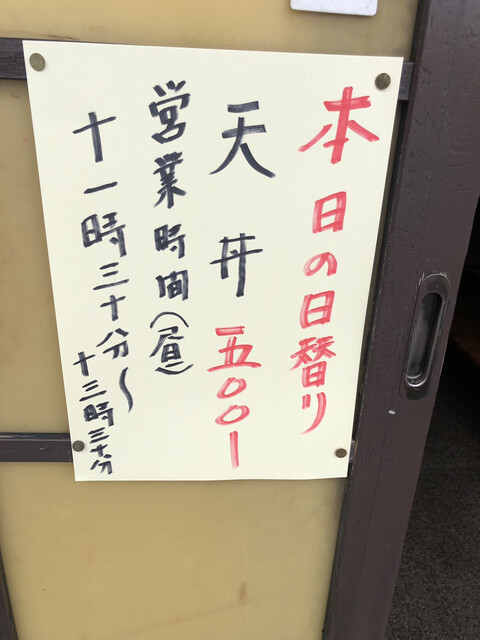 本日の日替り
天丼 五〇〇ー
営業時間(昼)
十一時三十分〜
十三時三十分